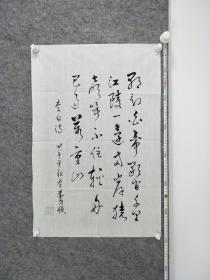 朝辞白帝彩雲間千里
江陵一日還兩岸猿
聲啼不住輕舟
已過萬重山
李白詩
甲午年秋